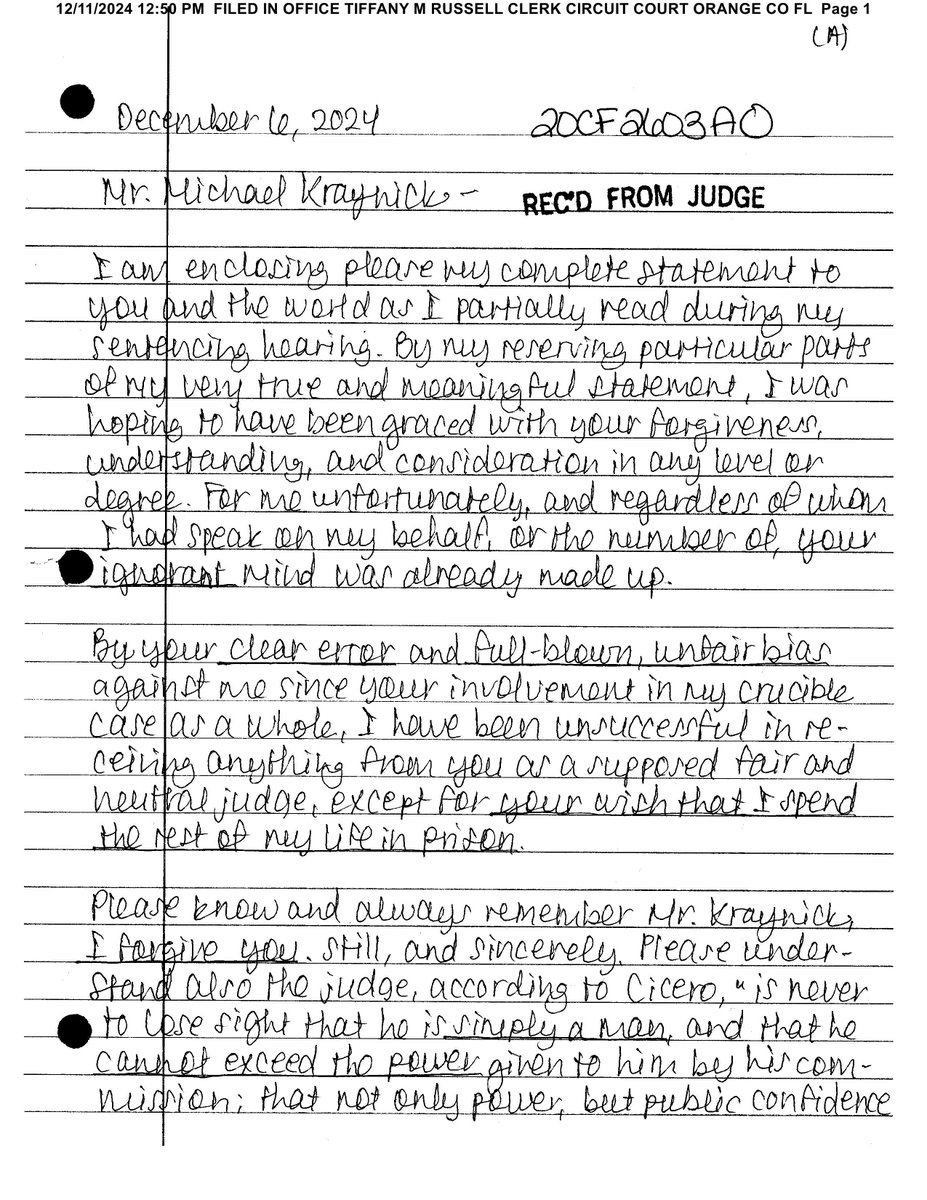 12/11/2024 12:50 PM FILED IN OFFICE TIFFANY M RUSSELL CLERK CIRCUIT COURT ORANGE CO FL Page 1
(A)
December 6, 2024 20CF2603AO
Mr. Michael Kraynick - REC'D FROM JUDGE
I am enclosing please my complete statement to
you and the world as I partially read during my
sentencing hearing. By my reserving particular parts
of my very true and meaningful statement, I was
hoping to have been graced with your forgiveness,
understanding, and consideration in any level or
degree. For me unfortunately, and regardless of whom
I had speak on my behalf, or the number of, your
ignorant mind was already made up.
By your clear error and full-blown, unfair bias
against me since your involvement in my crucible
case as a whole, I have been unsuccessful in re-
ceiving anything from you as a supposed fair and
neutral judge, except for your wish that I spend
the rest of my life in prison.
Please know and always remember Mr. Kraynick,
I forgive you. Still, and sincerely. Please under-
stand also the judge, according to Cicero, "is never
to lose sight that he is simply a man, and that he
cannot exceed the power given to him by his com-
mission; that not only power, but public confidence